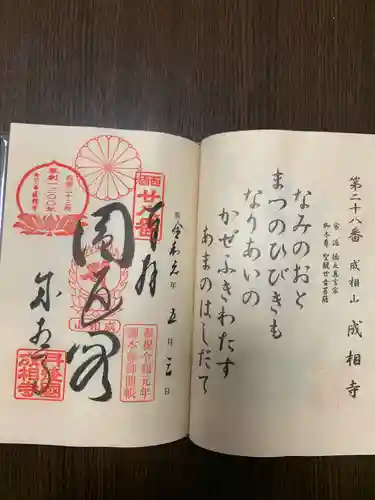 第二十八番 成相山 成相寺
宗派 橋立真言宗
御本尊 聖観世音菩薩
なみのおと
まつのひびきも
なりあいの
かぜふきわたす
あまのはしだて
西国
廿八番
奉拝
令和元年五月三日
西国三十三所
草創一三〇〇年
成相寺
奉祝令和元年
御本尊御開帳
丹後國
成相寺